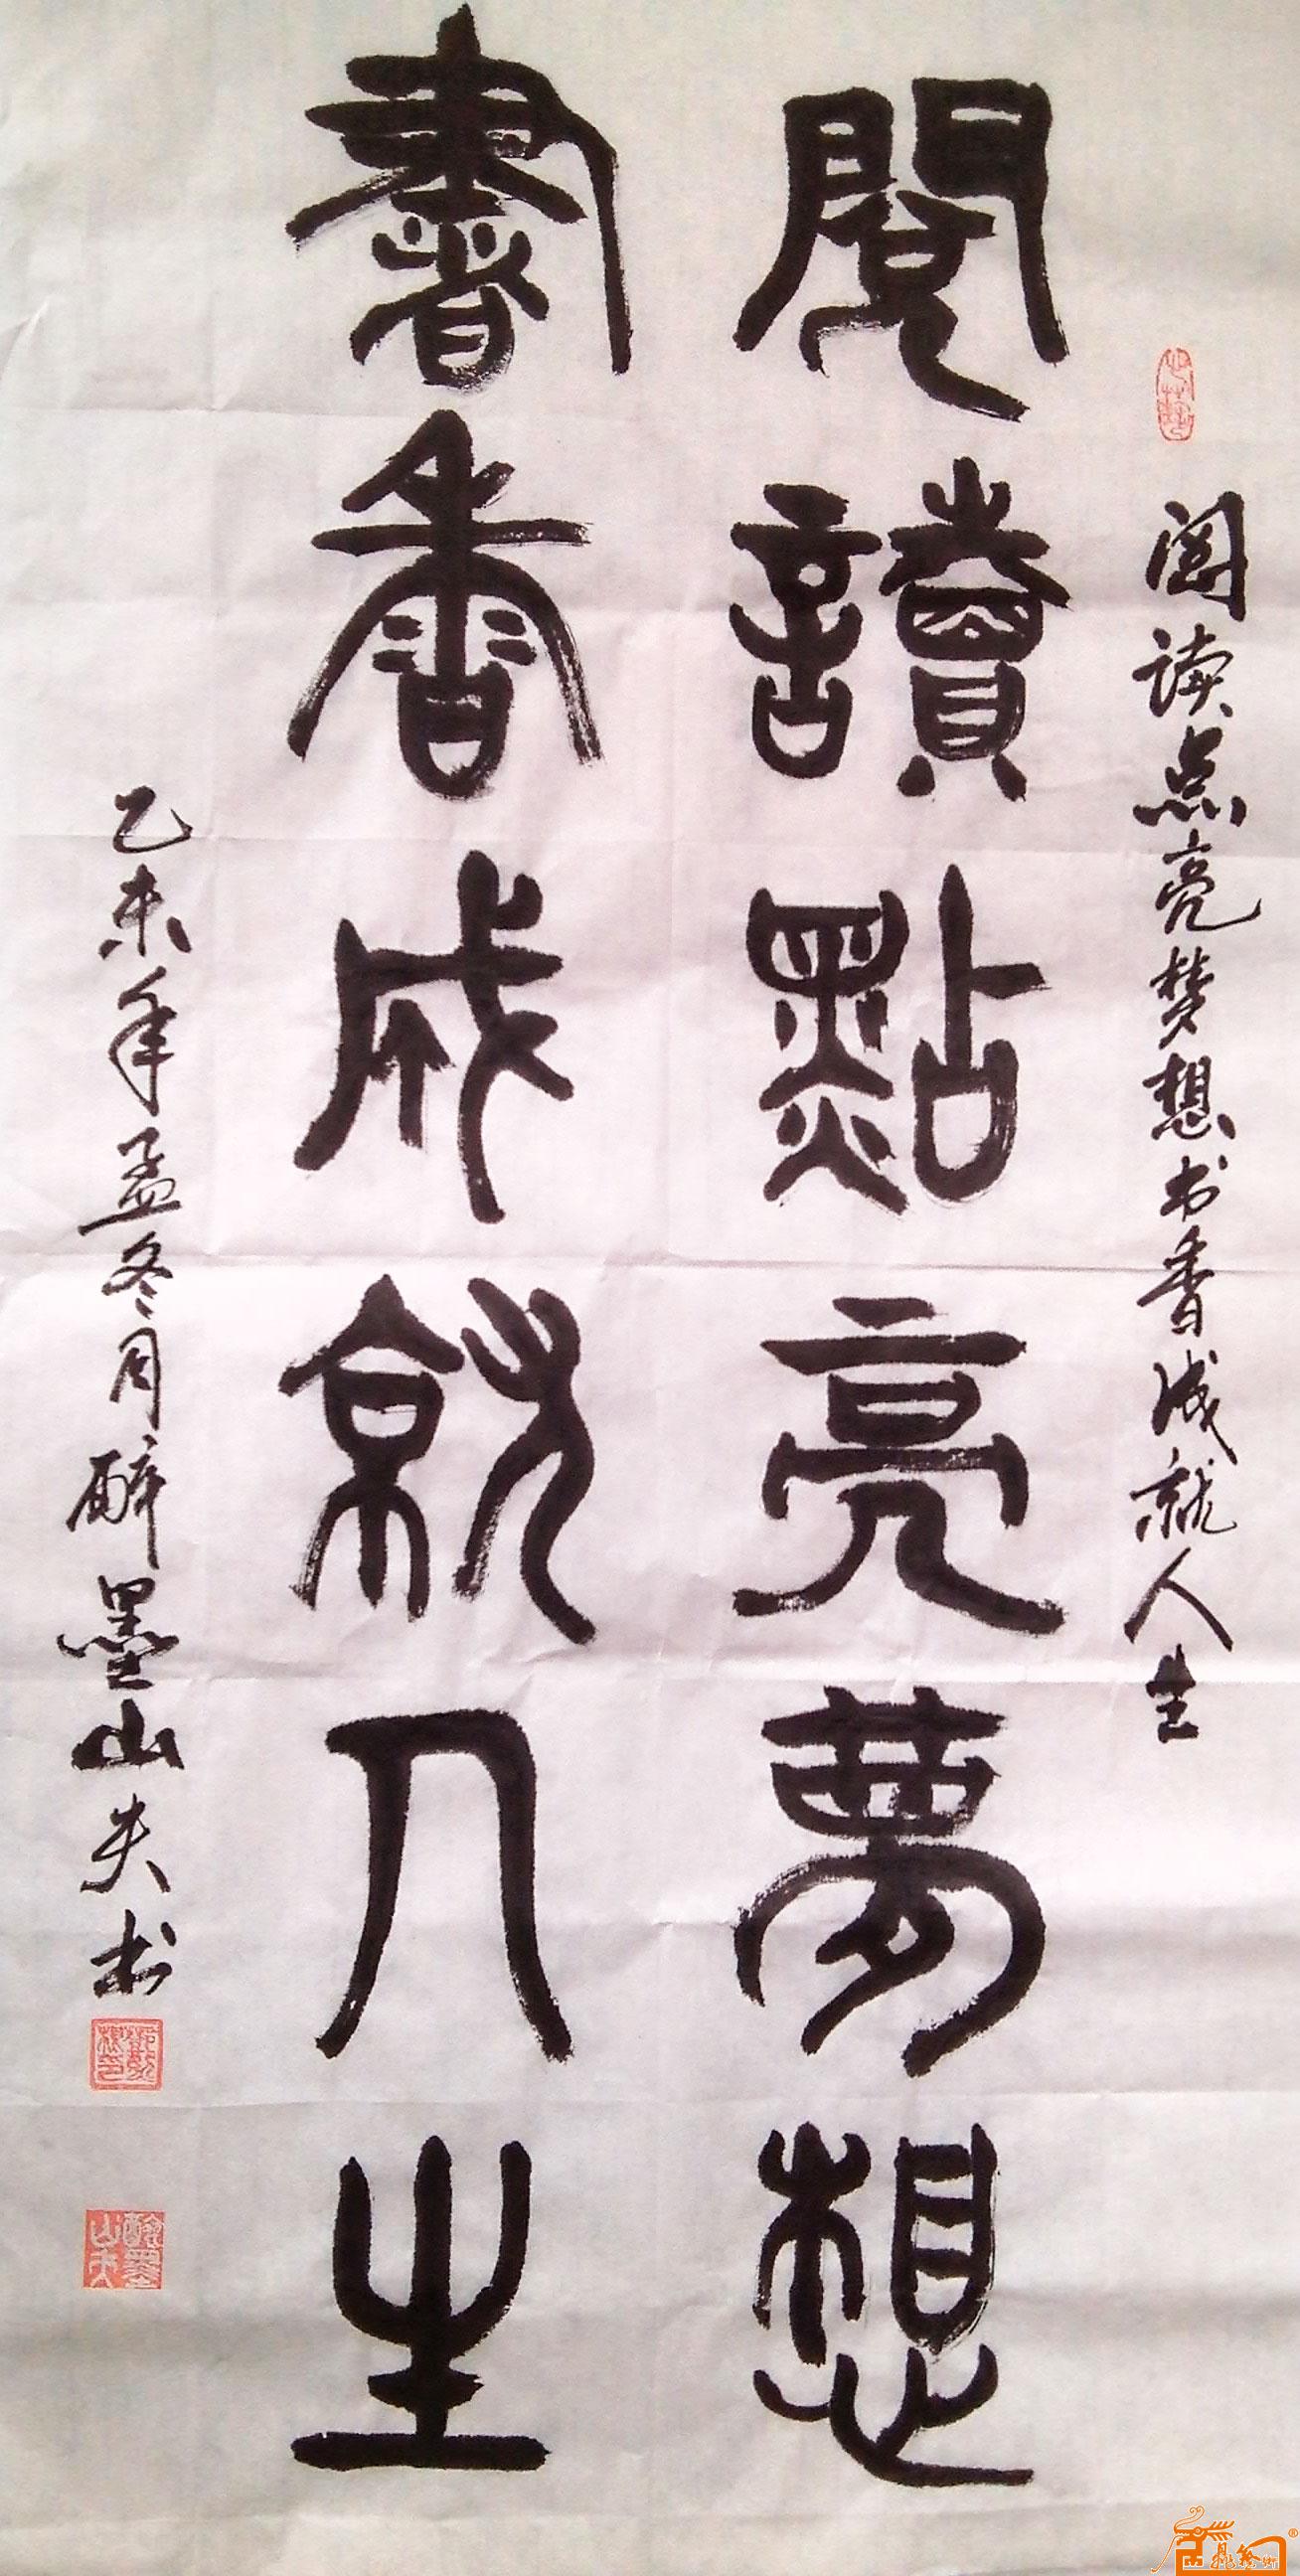 阅读点亮梦想书香成就人生
閱讀點亮夢想
書香成就人生
乙未年孟冬月醉墨山夫书
醉墨山夫